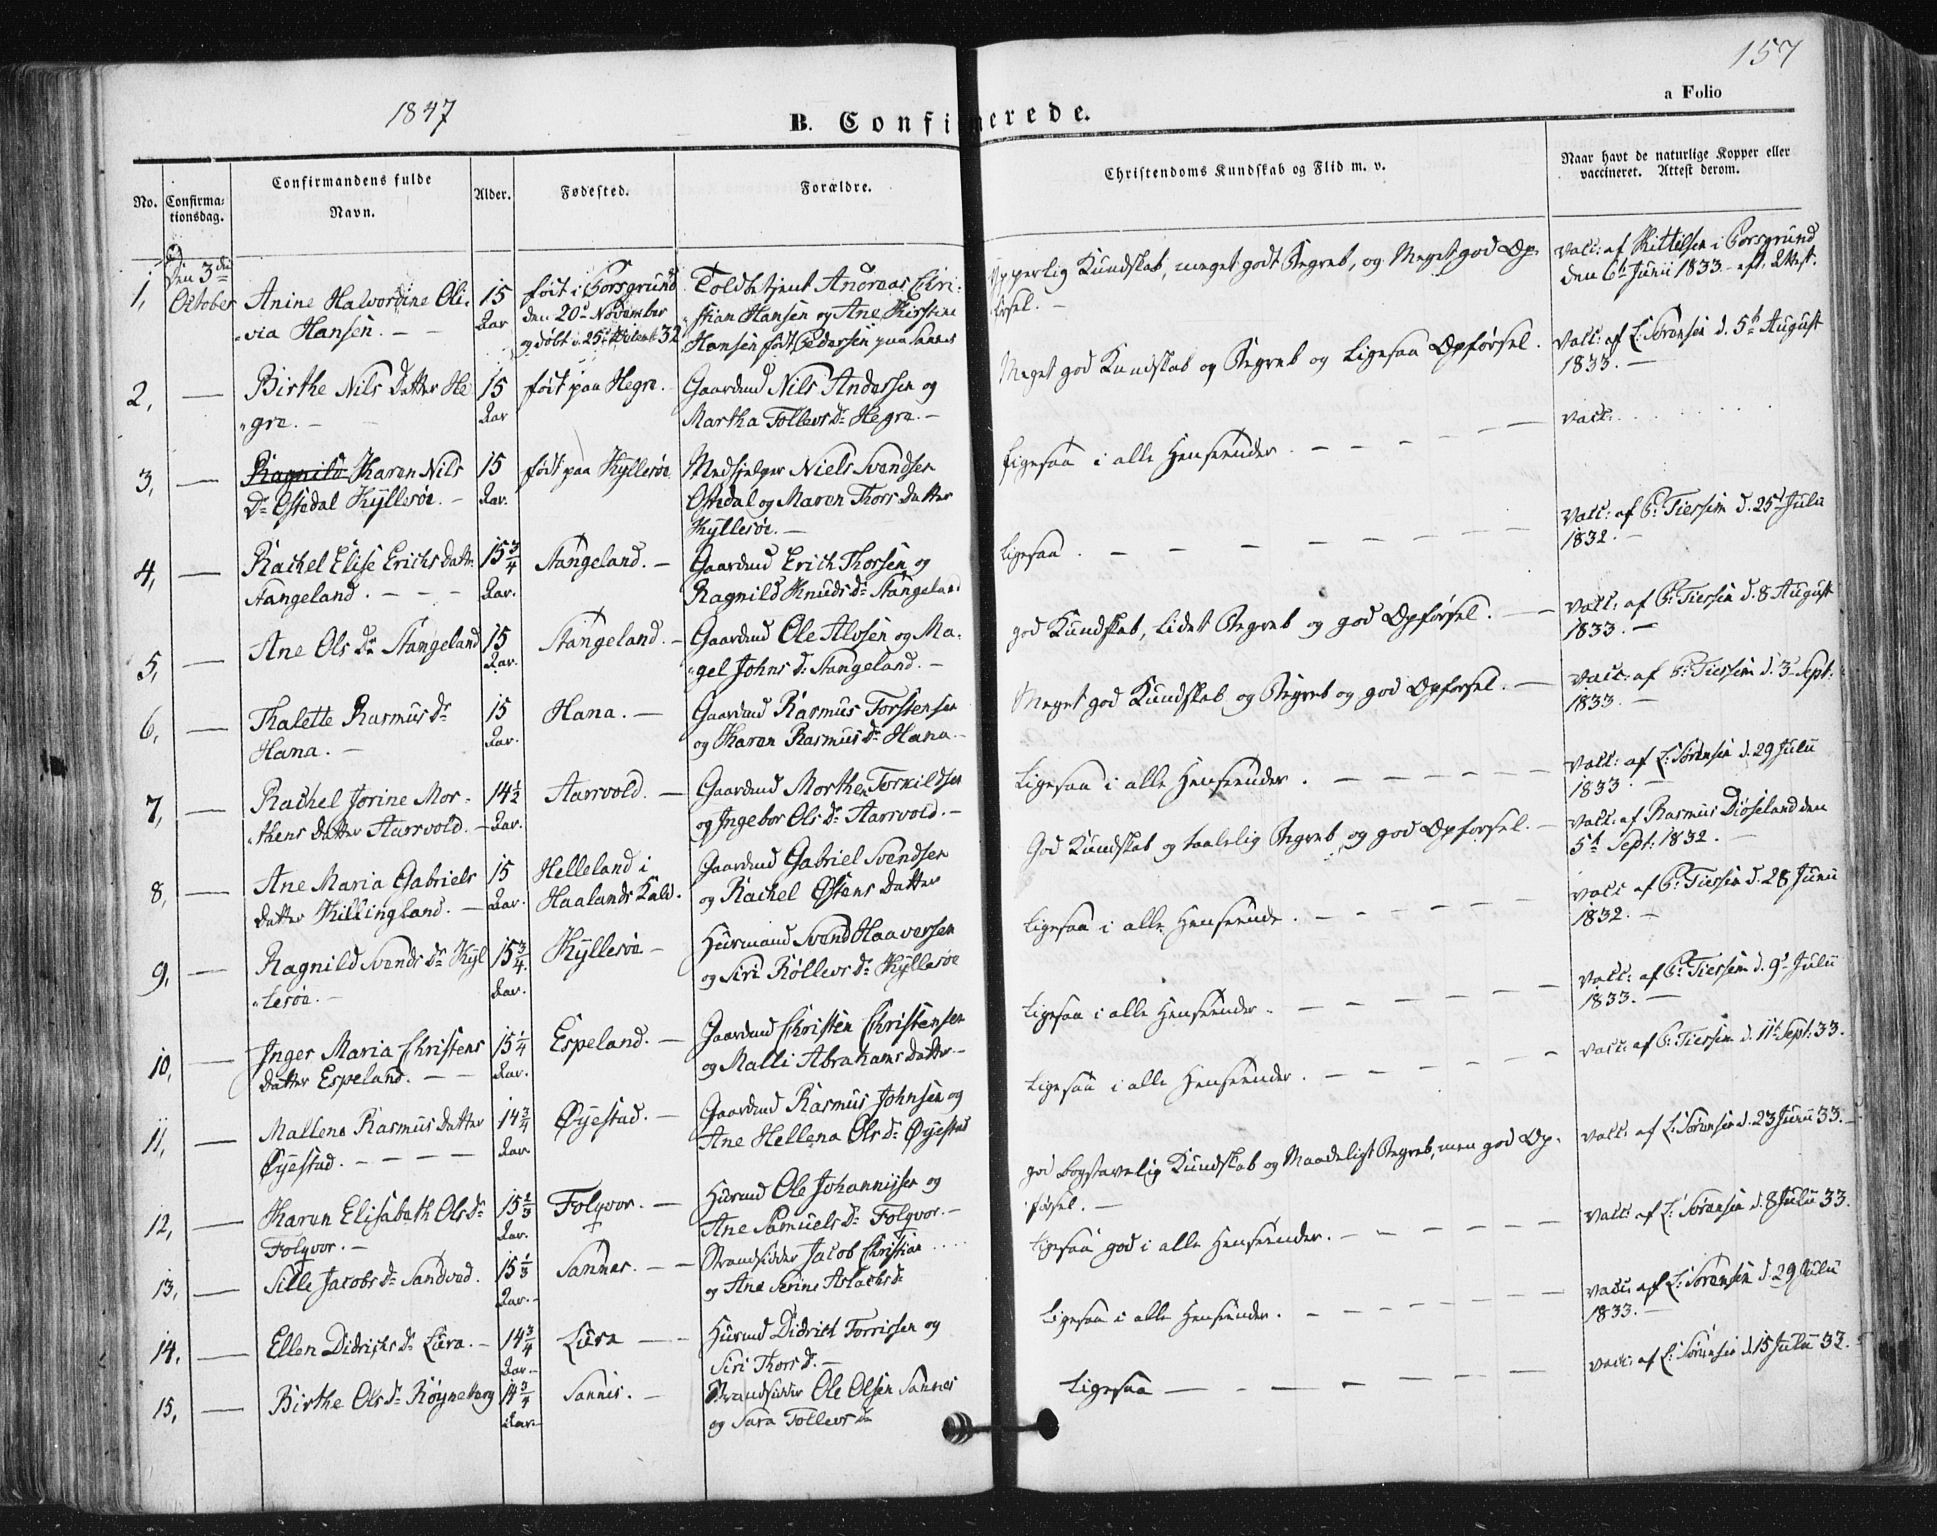 157
1847
B. Confirmerede.
a Folio
No.
Confirma-
tionsdag.
Confirmandens fulde
Navn.
Alder.
Fødested.
Forældre.
Christendoms Kundskab og Flid m. v.
Naar havt de naturlige Kopper eller
vaccineret. Attest derom.
1,
Den 3die
October
Anine Halvordine Oli-
via Hansen. —
15
Aar
født i Porsgrund
den 20de November
og døbt d. 25de 32
Toldbetjent Andreas Chri-
stian Hansen og Ane Kirstine
Hansen født Pedersen paa Sannes
Opperlig Kundskab, meget godt Begreb, og Meget god Op-
førsel. —
Vacc: af Kittelsen i Porsgrund
den 6te Junii 1833 - eft. Attest.
2, —
Birthe Nils Datter He
gre. —
15
Aar
født paa Hegre.
Gaardmd Nils Andersen og
Martha Tollevs Dr Hegre. —
Meget god Kundskab og Begreb og Ligesaa Opførsel.
Vacc: af L: Sørensen d. 5te August
1833. —
3, —
Ragnild Karen Nils
Dr Ostedal Kyllesøe. —
15
Aar.
født paa Kyllesøe
Medhjelper Niels Svendsen
Ostedal og Maren Thors Datter
Kyllesøe. —
Ligesaa i alle Henseender. — — — — — —
Vacc: . . . . . . . .
4, —
Rachel Elise Erichs Datter
Stangeland. — — —
15 3/4
Aar.
Stangeland. —
Gaardmd Erich Thorsen og
Ragnild Knuds Dr Stangeland
Ligesaa. — — — — — — —
Vacc: af P: Tiersen d. 25de Julii
1832. —
5, —
Ane Ols Dr Stangeland
15
Aar.
Stangeland. —
Gaardmd Ole Alvsen og Ma-
gel Johns Dr Stangeland. —
god Kundskab, Lidet Begreb og god Opførsel. — —
Vacc: af P: Tiersen d. 8 August
1833. —
6, —
Thalette Rasmus Dr
Hana. —
15
Aar.
Hana. —
Gaardmd Rasmus Torstensen
og Karen Rasmus Dr Hana. —
Meget god Kundskab og Begreb og god Opførsel. —
Vacc: af P: Tiersen d. 3 Sept:
1833. —
7, —
Rachel Jorine Mor-
thens Datter Aarrvold. —
14 1/2
Aar.
Aarrvold. —
Gaardmd Morthen Torkildsen
og Ingebor Ols Dr Aarrvold. —
Ligesaa i alle Henseender. — — — — — —
Vacc: af L: Sørensen d. 29 Julii
1833. —
8, —
Ane Maria Gabriels
Datter Killingland. —
15
Aar.
Helleland i
Haalands Kald.
Gaardmd Gabriel Svendsen
og Rachel Østens Datter
God Kundskab og taalelig Begreb, og god Opførsel. —
Vacc: af Rasmus Diøseland den
5te Sept: 1832. —
9, —
Ragnild Svends Dr Kyl
lesøe. —
15 3/4
Aar.
Kyllesøe —
Huusmand Svend Haaversen
og Siri Rollevs Dr Kyllesøe
Ligesaa i alle Henseende. — — — — — —
Vacc af P: Tiersen d. 28 Junii
1832. —
10, —
Inger Maria Christens
Datter Espeland. — —
15 1/4
Aar.
Espeland. —
Gaardmd Christen Christensen
og Malli Abrahams Datter —
Ligesaa i alle Henseender. — — — — — —
Vacc: af P: Tiersen d. 9de Julii
1833. —
11, —
Mallene Rasmus Datter
Øyestad. — — — —
14 3/4
Aar.
Øyestad. —
Gaardmd Rasmus Johnsen og
Ane Hellena Ols Dr Øyestad
Ligesaa i alle Henseender. — — — — — —
Vacc: af P: Tiersen d. 11te Sept: 33.
12, —
Karen Elisabeth Ols Dr
Folqvor. —
15 2/3
Aar.
Folqvor. —
Husmd Ole Johannissen og
Ane Samuels Dr Folqvor. —
god bogstavelig Kundskab og Maadeligt Begreb, men god Op-
førsel. —
Vacc: af L: Sørensen d. 23 Junii 33. —
13, —
Sille Jacobs Dr Sandved.
15 1/3
Aar. —
Sannes. — —
Strandsidder Jacob Christian . . . .
og Ane Serine Aslachs Dr
Ligesaa god i alle Henseender. — — — — —
Vacc: af L: Sørensen d. 8 Julii 33.
14, —
Ellen Didrichs Dr Lura. —
14 3/4
Aar. —
Lura — —
Husmd Didrich Torrissen og
Siri Thors Dr. —
Ligesaa i alle Henseender. — — — — — —
Vacc: af L: Sørensen d. 29 Julii
1833. —
15, —
Birthe Ols Dr Røyneberg
14 3/4
Aar. —
Sannes. —
Strandsidder Ole Olsen Sannes
og Sara Tollevs Dr
Ligesaa — — — — — — —
Vacc: af L: Sørensen d. 15 Julii 32.